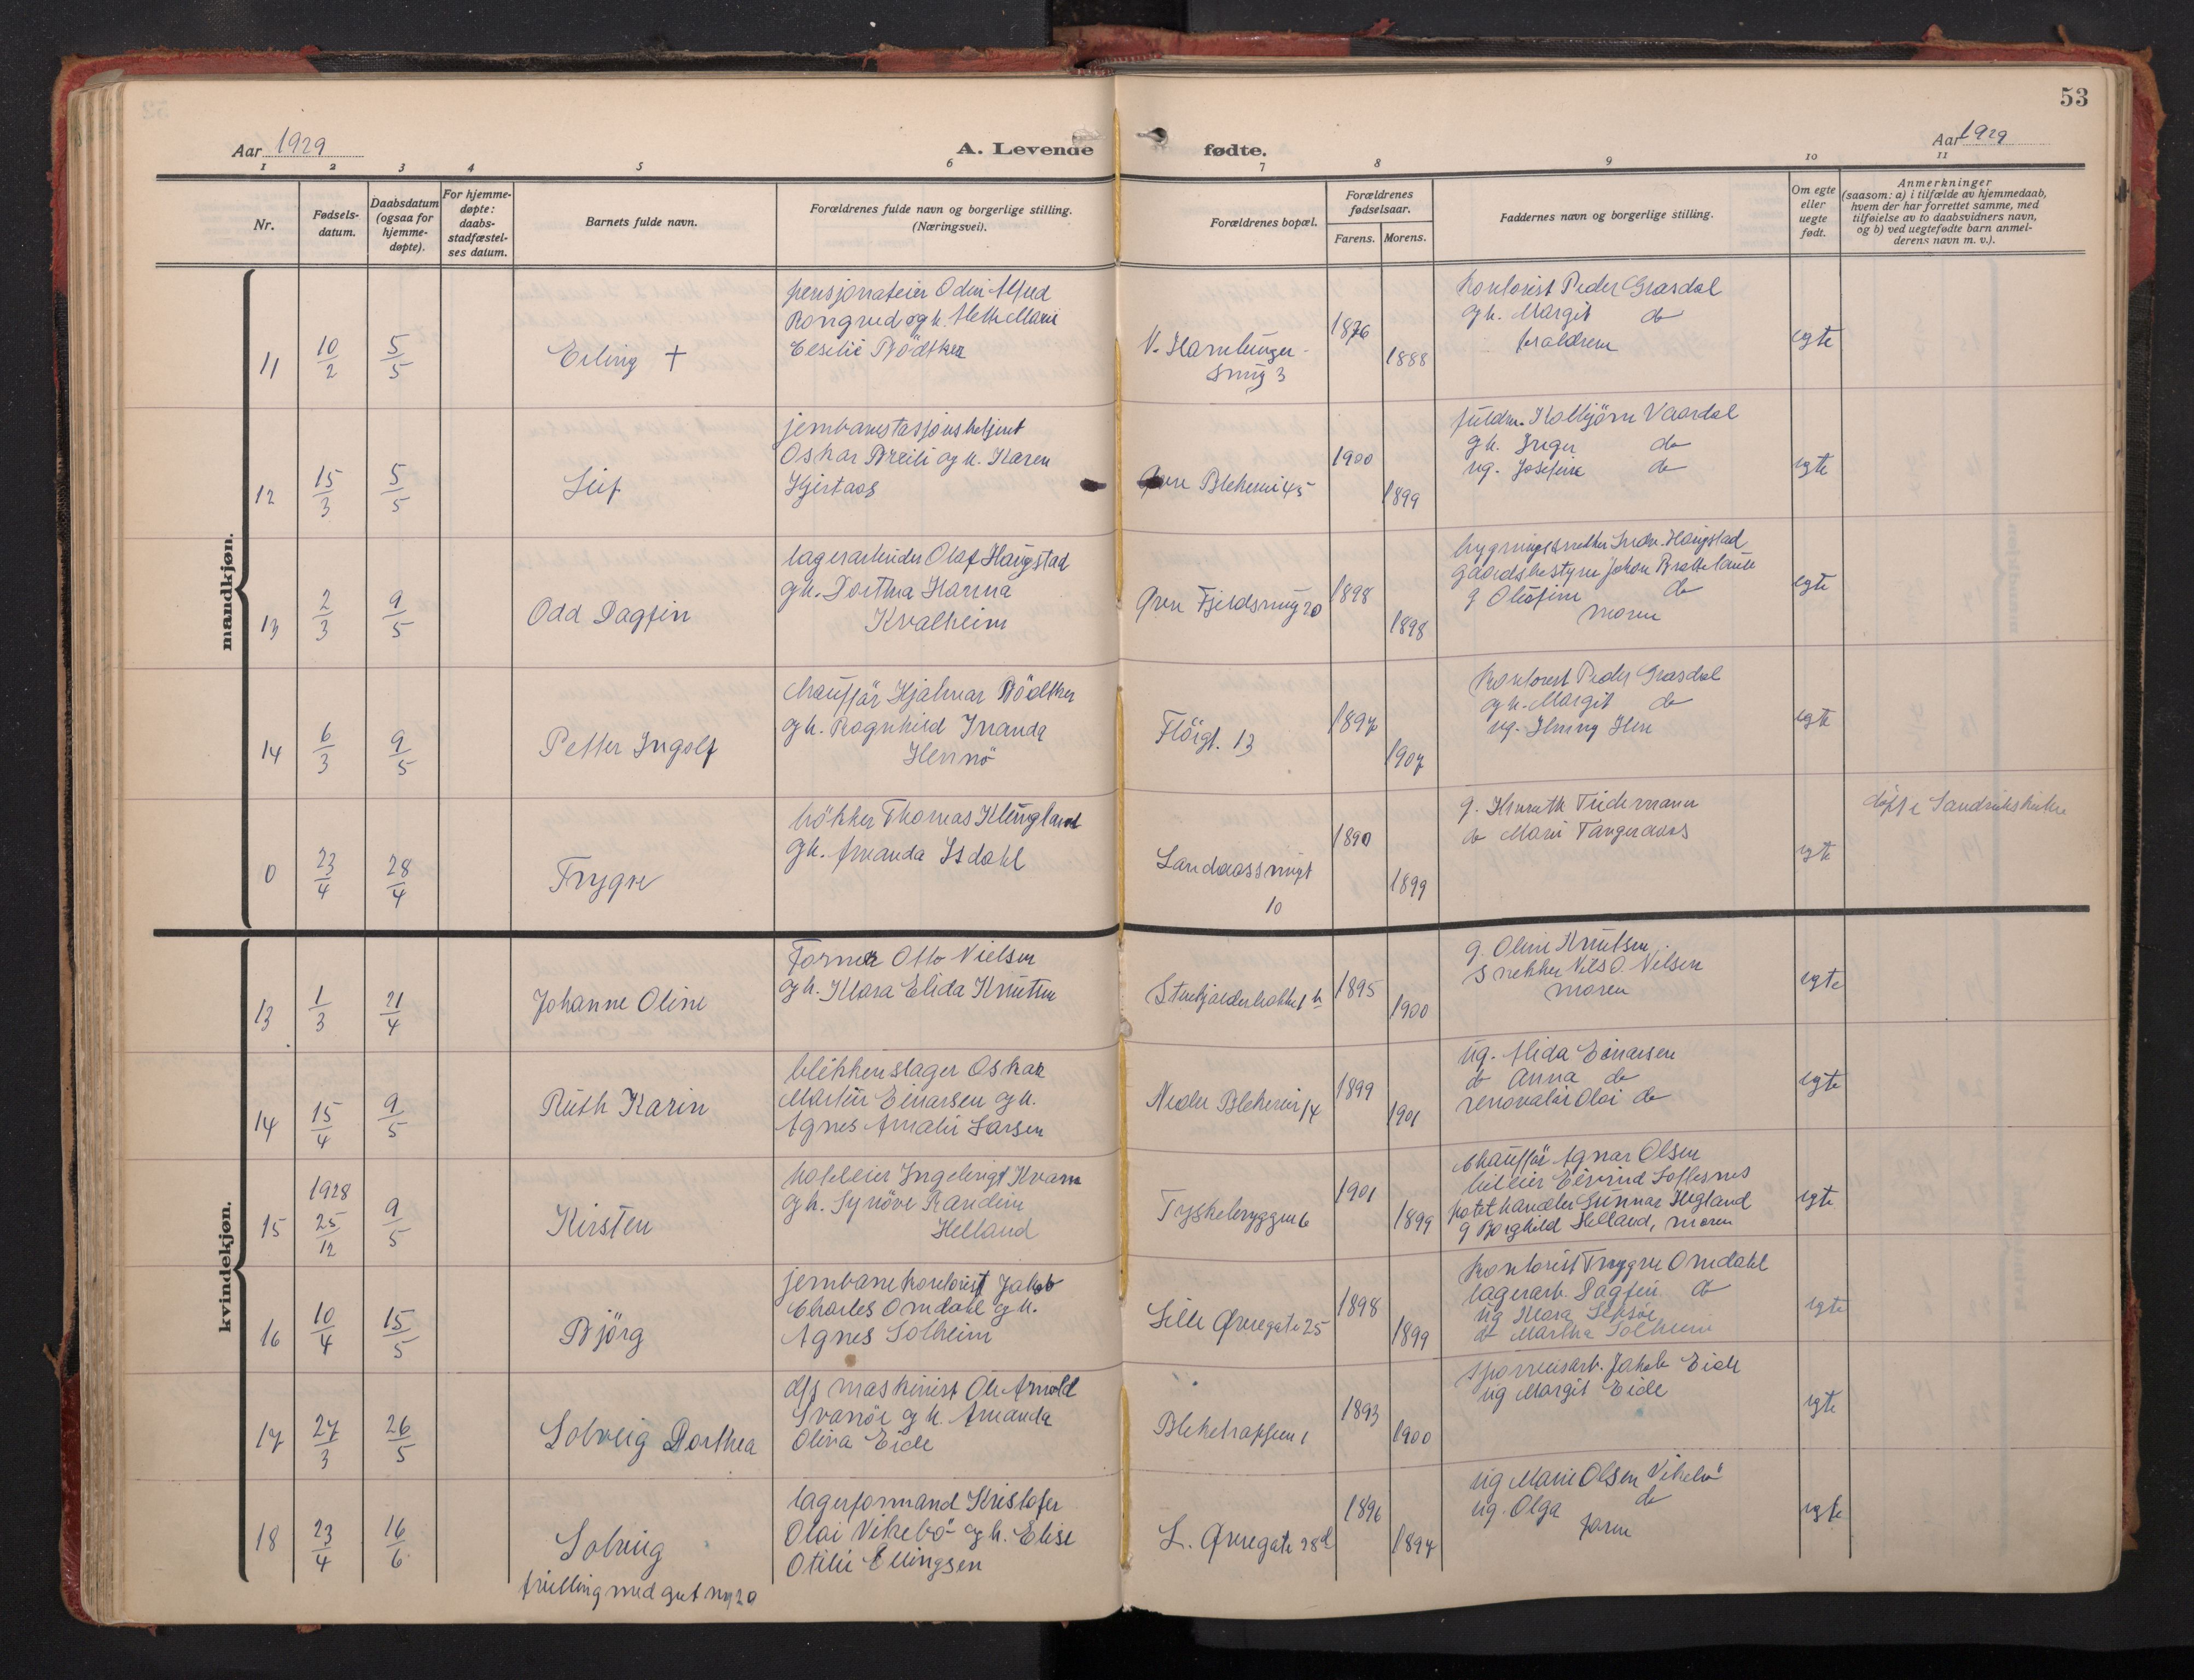 53
Aar 1929
A. Levende fødte.
Aar 1929
1 2 3 4 5 6 7 8 9 10 11
Nr.
Fødsels-
datum.
Daabsdatum
(ogsaa for
hjemme-
døpte).
For hjemme-
døpte:
daabs-
stadfæstel-
ses datum.
Barnets fulde navn.
Forældrenes fulde navn og borgerlige stilling.
(Næringsvei).
Forældrenes bopæl.
Forældrenes
fødselsaar.
Farens. Morens.
Faddernes navn og borgerlige stilling.
Om egte
eller
uegte
født.
Anmerkninger
(saasom: a) i tilfælde av hjemmedaab,
hvem der har forrettet samme, med
tilføielse av to daabsvidners navn,
og b) ved uegtefødte barn anmel-
derens navn m. v.).
mandkjøn.
11
10/2
5/5
Erling +
pensjonateier Odin Alfred
Rongved og h. Methe Marie
Cesilie Bödtker
V. Hamburger-
smug 3
1876
1888
kontorist Peder Grasdal
gh. Margit do
foraldrene
egte
12
15/3
5/5
Leif
jernbanestasjonsbetjent
Oskar Breili og h. Karen
Gjerstaas
Øvre Blekevei 45
1900
1899
fuldm. Kolbjörn Vaardal
gh. Inger do
ug. Josefine do
egte
13
2/3
9/5
Odd Dagfin
lagerarbeider Olaf Haugstad
gh. Dorthea Hanna
Kvalheim
Øvre Fjeldsmug 20
1898
1898
bygningssnekker Haugstad
gaardsbestyrer Johan Brattetaule
g Olefine do
moren
egte
14
6/3
9/5
Petter Ingolf
chauffär Hjalmar Bödtker
og h. Ragnhild Iranda
Hennö
Flöigt. 13
1897
1907
kontorist Peder Grasdal
og h. Margit do
ug.
egte
0
23/4
28/4
Trygve
bökker Thomas Klungland
gh. Amanda Isdahl
Landaassvingt
10
1890
1899
g. Tiedemann
do Marie Tangeraas
egte
døpt i Sandvikskirken
kvindekjøn.
13
1/3
21/4
Johanne Oline
Former Otto Nielsen
og h. Klara Elida Knutsen
Stenkjælderbakken 1 b
1895
1900
g. Oline Knutsen
Snekker Nils O. Nilsen
moren
egte
14
15/4
9/5
Ruth Karin
blikkenslager Oskar
Martin Einarsen og h.
Agnes Amalie Larsen
Nedre Blekevei 14
1899
1901
ug. Alida Einarsen
do Anna do
renovatör Olai do
egte
15
1928
25/12
9/5
Kirsten
hoteleier Ingebrigt Kvam
og h. Synöve Randine
Helland
Tyskebryggen 6
1901
1899
chaufför Agnar Olsen
bileier Eivind Loftesnes
potethandler Gunnar Hegland
g Borghild Helland, moren
egte
16
10/4
15/5
Björg
jernbanekontorist Jakob
Charles Omdahl og h.
Agnes Solheim
Lille Øvregate 25
1898
1899
kontorist Trygve Omdahl
lagerarb. Dagfin do
ug Klara
do Martha Solheim
egte
17
27/3
26/5
Solveig Dorthea
d/s maskinist Ole Arnold
Svanöe og h. Amanda
Oliva Eide
Bleketrappen 1
1893
1900
sporveisarb. Jakob Eide
ug Margit Eide
egte
18
23/4
16/6
Solveig
lagerformand Kristofer
Olai Vikebö og h. Elise
Otilie Ellingsen
L. Øvregate 28d
1896
1897
ug Marie Olsen Vikebö
ug. Olga do
faren
egte
tvilling med gut nr 20